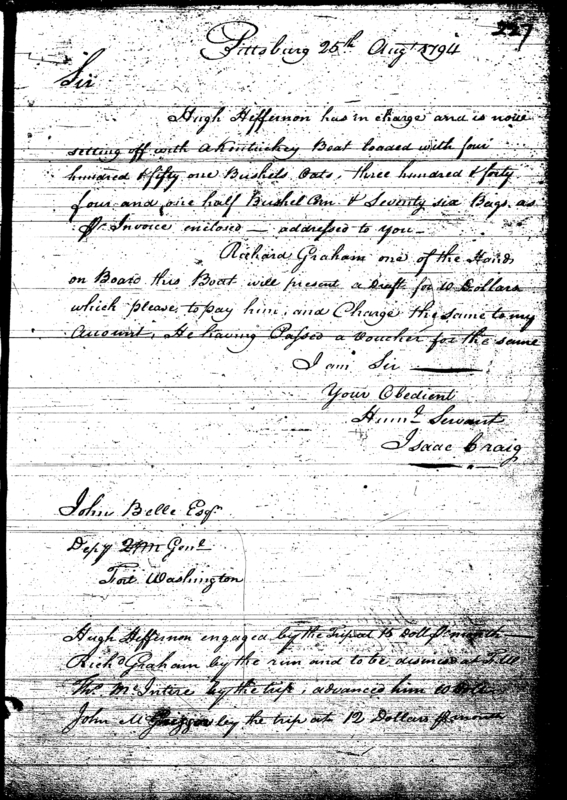 227
Pittsburg 25th Augt 1794
Sir
Hugh Heffernon has in charge and is now
setting off with a Kentuckey Boat loaded with four
hundred & fifty one Bushels Oats, three hundred & forty
four and one half Bushel Corn & Seventy six Bags, as
Pr Invoice enclosed — addressed to you —
Richard Graham one of the Hands
on Board this Boat will present a Draft for 10 Dollars
which please to pay him, and Charge the same to my
Account, He having Passed a Voucher for the same
I am Sir
Your Obedient
Humle Servant
Isaac Craig
John Belle Esqr
Depy QM Genl
Fort Washington
Hugh Heffernon engaged by the Trip at 15 Doll Pr month
Richd Graham by the run and to be dismissed at F.W
Thos McIntire by the trip, advanced him 10 Dolls
John M Greggor by the trip at 12 Dollars Pr month